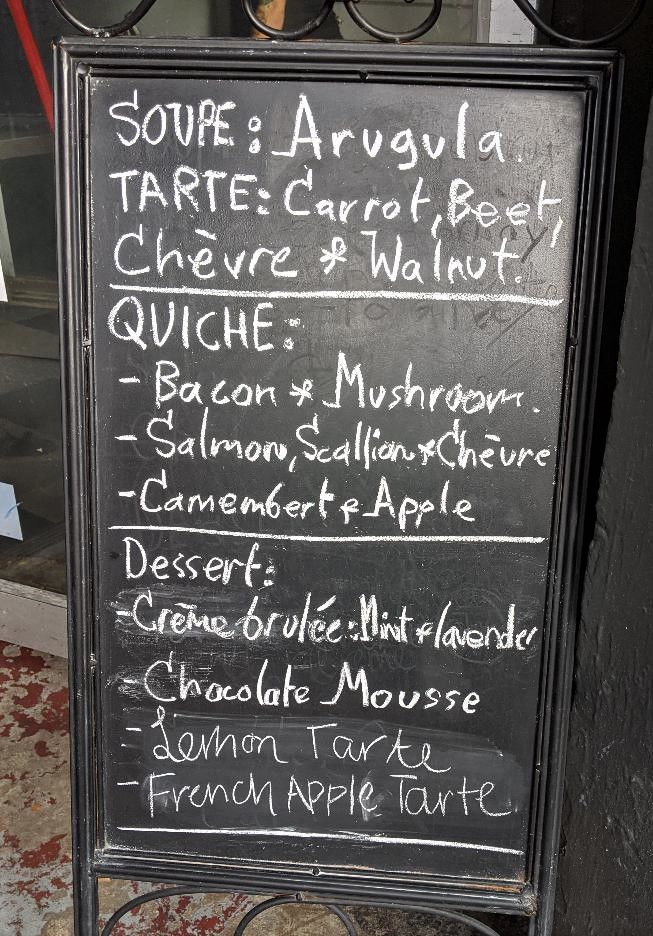 SOUPE: Arugula.
TARTE: Carrot, Beet,
Chèvre & Walnut.
QUICHE:
- Bacon & Mushroom.
- Salmon, Scallion & Chèvre
- Camembert & Apple
Dessert:
- Crème brulée: Mint & lavender
- Chocolate Mousse
- Lemon Tarte
- French Apple Tarte